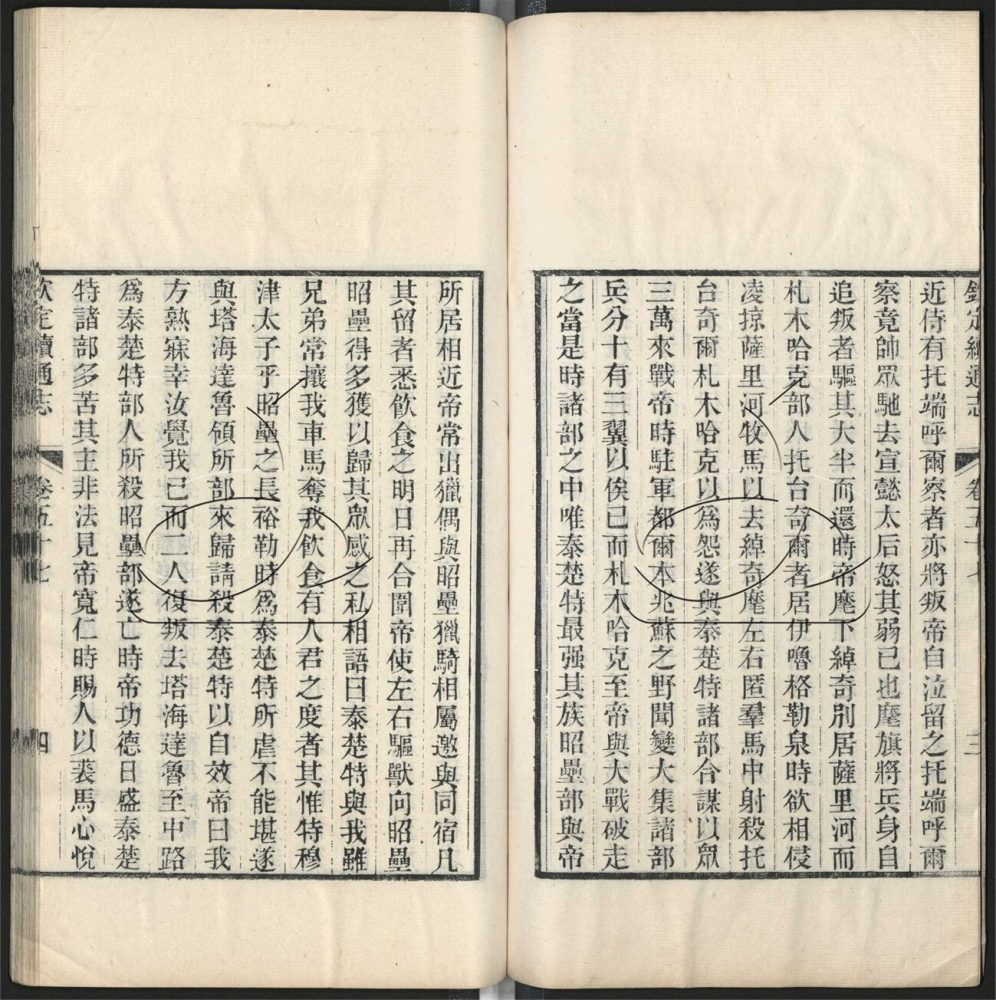 欽定續通志 卷五十七 三
近侍有托端呼爾察者亦將叛帝自泣留之托端呼爾
察竟帥眾馳去宣懿太后怒其弱己也麾旗將兵身自
追叛者驅其大半而還時帝麾下綽奇別居薩里河而
札木哈克部人托台奇爾者居伊嚕格勒泉時欲相侵
凌掠薩里河牧馬以去綽奇麾左右匿羣馬中射殺托
台奇爾札木哈克以為怨遂與泰楚特諸部合謀以眾
三萬來戰帝時駐軍都爾本兆蘇之野聞變大集諸部
兵分十有三翼以俟已而札木哈克至帝與大戰破走
之當是時諸部之中唯泰楚特最强其族昭壘部與帝
所居相近帝常出獵偶與昭壘獵騎相屬邀與同宿凡
其留者悉飲食之明日再合圍帝使左右驅獸向昭壘
昭壘得多獲以歸其眾感之私相語曰泰楚特與我雖
兄弟常攘我車馬奪我飲食有人君之度者其惟特穆
津太子乎昭壘之長裕勒時為泰楚特所虐不能堪遂
與塔海達魯領所部來歸請殺泰楚特以自效帝曰我
方熟寐幸汝覺我已而二人復叛去塔海達魯至中路
為泰楚特部人所殺昭壘部遂亡時帝功德日盛泰楚
特諸部多苦其主非法見帝寬仁時賜人以裘馬心悅
欽定續通志 卷五十七 四